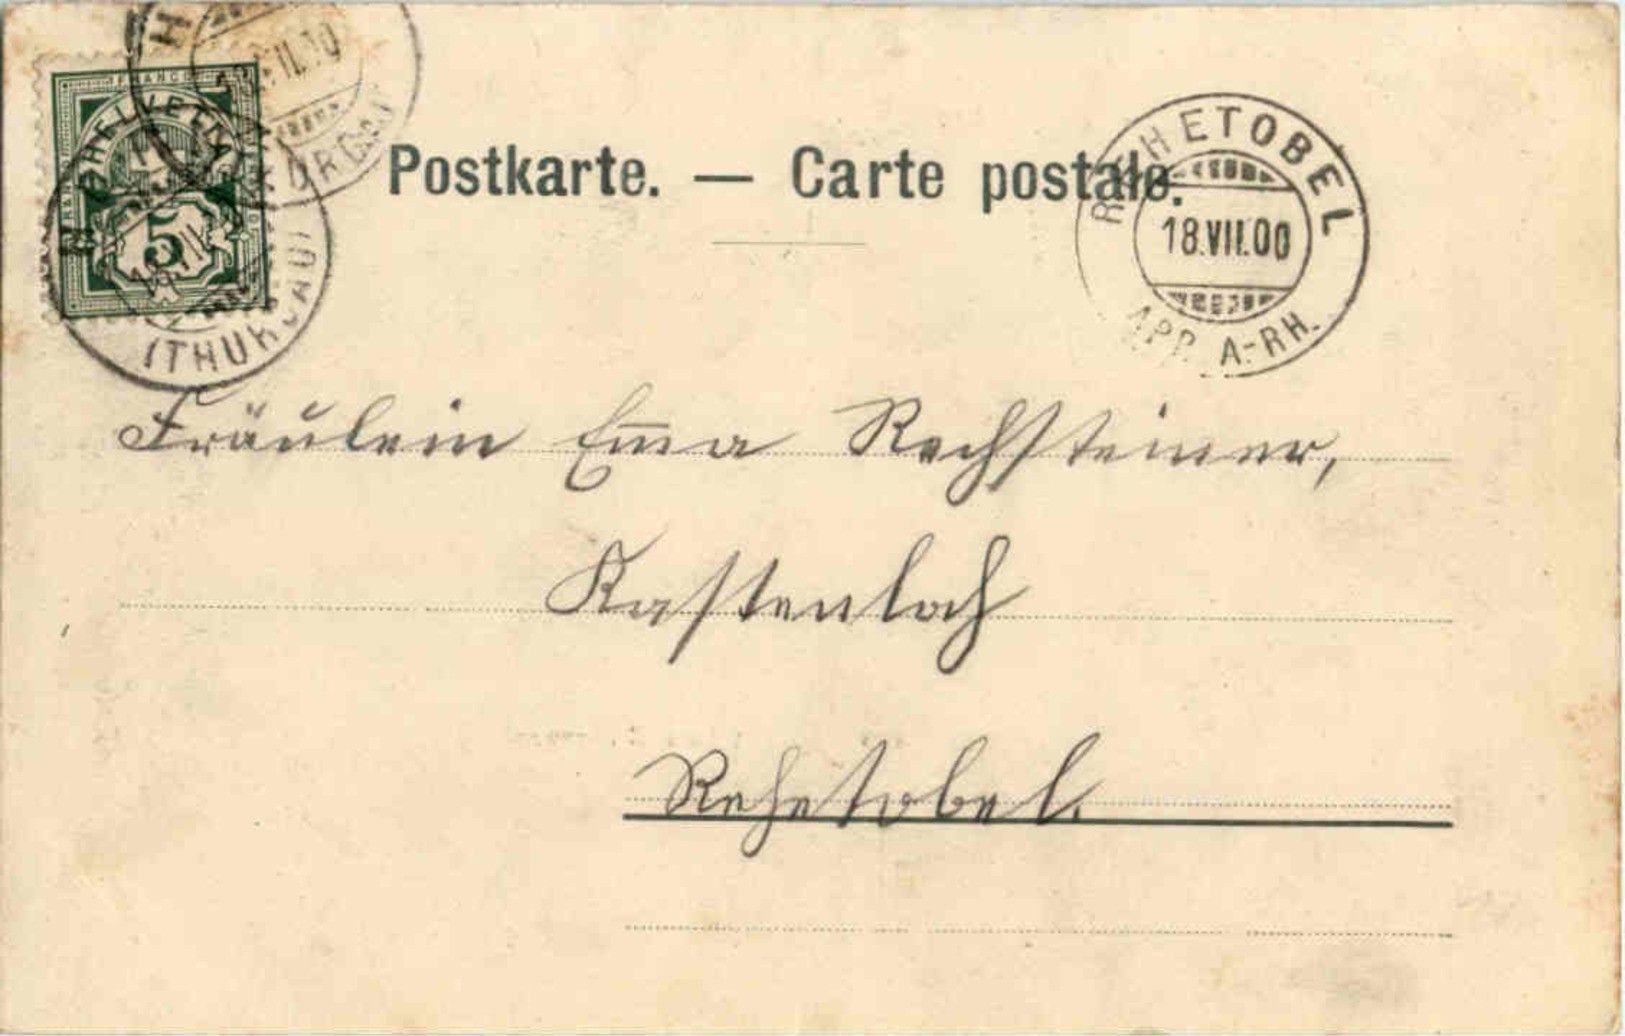 FRANCO
HELVETIA
5
(THURGAU)
Postkarte. — Carte postale.
REHETOBEL
18.VII.00
APP. A.-RH.
Fräulein Em̅a Rechsteiner,
Kastenloch
Rehetobel.